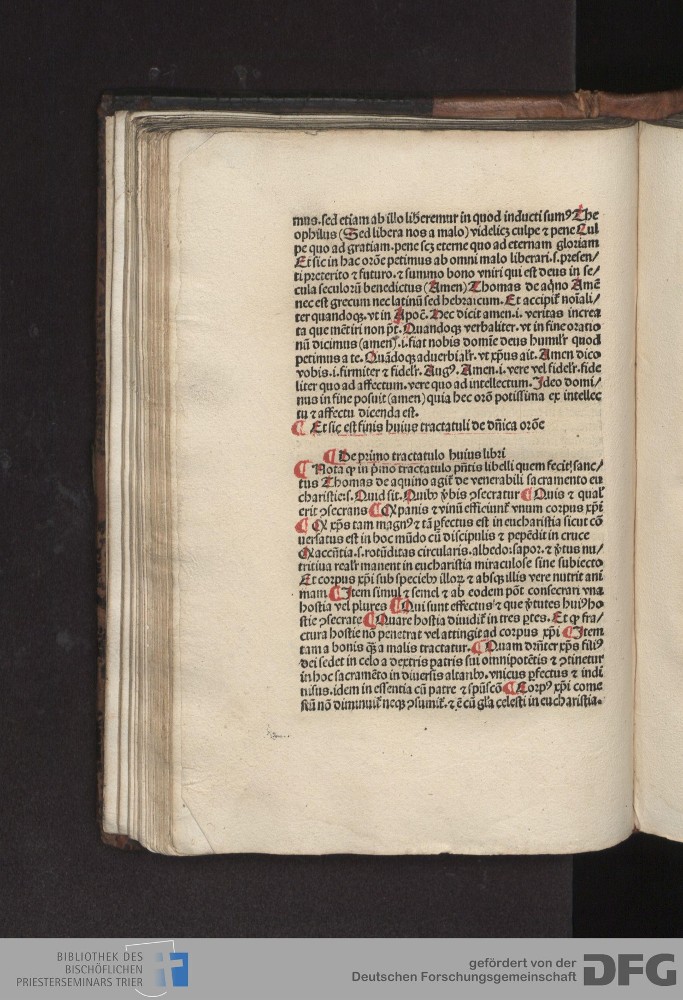 mus.sed etiam ab illo liberemur in quod inducti sumꝰ The
ophilus (Sed libera nos a malo) videlicꝫ culpe ⁊ pene Cul
pe quo ad gratiam.pene scꝫ eterne quo ad eternam gloriam
Et sic in hac orōe petimus ab omni malo liberari.s.presen/
ti preterito ⁊ futuro.⁊ summo bono vniri qui est deus in se/
cula seculorū benedictus (Amen) Thomas de aq̄no Amē
nec est grecum nec latinū sed hebraicum. Et accipiť noīali/
ter quandoqꝫ.vt in Apoc̄. Hec dicit amen.i.veritas increa
ta que mētiri non pt̄. Quandoqꝫ verbaliter.vt in fine oratio
nū dicimus (amen).i.fiat nobis domīe deus humilr̄ quod
petimus a te. Quādoqꝫ aduerbialr̄.vt xp̄us ait. Amen dico
vobis.i.firmiter ⁊ fidelr̄. Augꝰ. Amen.i.vere vel fidelr̄.fide
liter quo ad affectum.vere quo ad intellectum. Ideo domi/
nus in fine posuit (amen) quia hec orō potissima ex intellec
tu ⁊ affectu dicenda est.
¶ Et sic est finis huius tractatuli de dn̄ica orōe
¶ De primo tractatulo huius libri
¶ Nota ꝙ in pͥmo tractatulo pn̄tis libelli quem fecit sanc/
tus Thomas de aquino agiť de venerabili sacramento eu
charistie:s. Quid sit. Quibꝰ ꝟbis ꝯsecratur ¶ Quis ⁊ qualꝭ
erit ꝯsecrans ¶ Ꝙ panis ⁊ vinū efficiunť vnum corpus xp̄i
¶ Ꝙ xp̄s tam magnꝰ ⁊ tā ꝑfectus est in eucharistia sicut cō
uersatus est in hoc mūdo cū discipulis ⁊ pepēdit in cruce
Ꝙ accn̄tia.s.rotūditas circularis.albedo:sapor.⁊ ꝟtus nu/
tritiua realr̄ manent in eucharistia miraculose sine subiecto
Et corpus xp̄i sub speciebꝰ illoꝝ ⁊ absqꝫ illis vere nutrit ani
mam ¶ Item simul ⁊ semel ⁊ ab eodem pn̄t consecrari vna
hostia vel plures ¶ Qui sunt effectus ⁊ que ꝟtutes huiꝰ ho
stie ꝯsecrate ¶ Quare hostia diuidiť in tres ꝑtes. Et ꝙ fra/
ctura hostie nō penetrat vel attingit ad corpus xp̄i ¶ Item
tam a bonis qͣ̄ a malis tractatur. ¶ Quam dn̄ter xp̄s filiꝰ
dei sedet in celo a dextris patris sui omnipotētis ⁊ ꝯtinetur
in hoc sacramēto in diuersis altaribꝰ.vnicus ꝑfectus ⁊ indi
uisus.idem in essentia cū patre ⁊ spūscō ¶ Corpꝰ xp̄i come
stū nō diminuiť neqꝫ ꝯsumiť.⁊ ē cū gl̄a celesti in eucharistia.
BIBLIOTHEK DES
BISCHÖFLICHEN
PRIESTERSEMINARS TRIER
gefördert von der
Deutschen Forschungsgemeinschaft
DFG